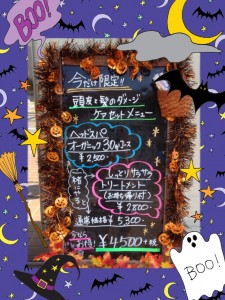 BOO!
今だけ限定!!
頭皮と髪のダメージ
ケアセットメニュー
ヘッドスパ
オーガニック30分コース
¥2,500
一緒にやると
しっとりサラサラ
トリートメント
(お持ち帰り付)
¥2800
通常価格¥5300
今なら
お得!
¥4500+税
BOO!